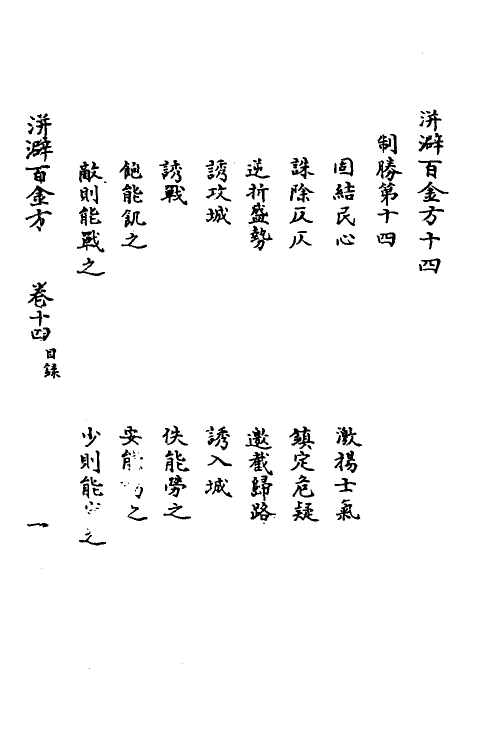 洴澼百金方十四
制勝第十四
固結民心　激揚士氣
誅除反仄　鎮定危疑
逆折盛勢　邀截歸路
誘攻城　誘入城
誘戰　佚能勞之
飽能飢之　安能之
敵則能戰之　少則能之
洴澼百金方　卷十四　目録　一